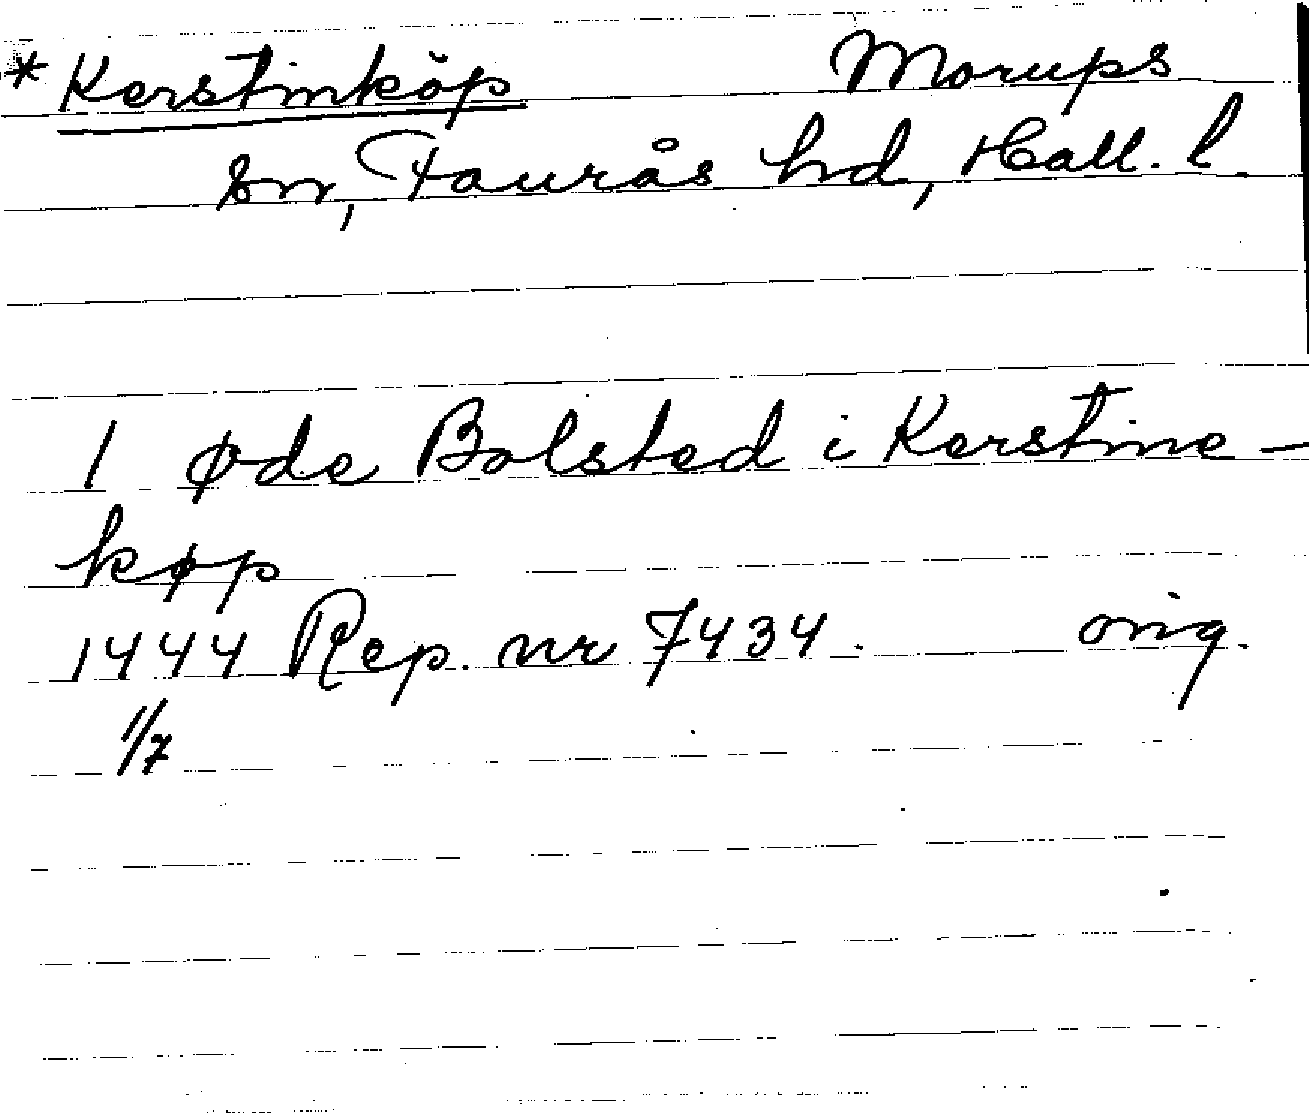 * Kerstinköp Morups
sn, Faurås hd, Hall. l.
1 øde Bolsted i Kerstine-
køp
1444 Rep. nr 7434. orig.
11/7